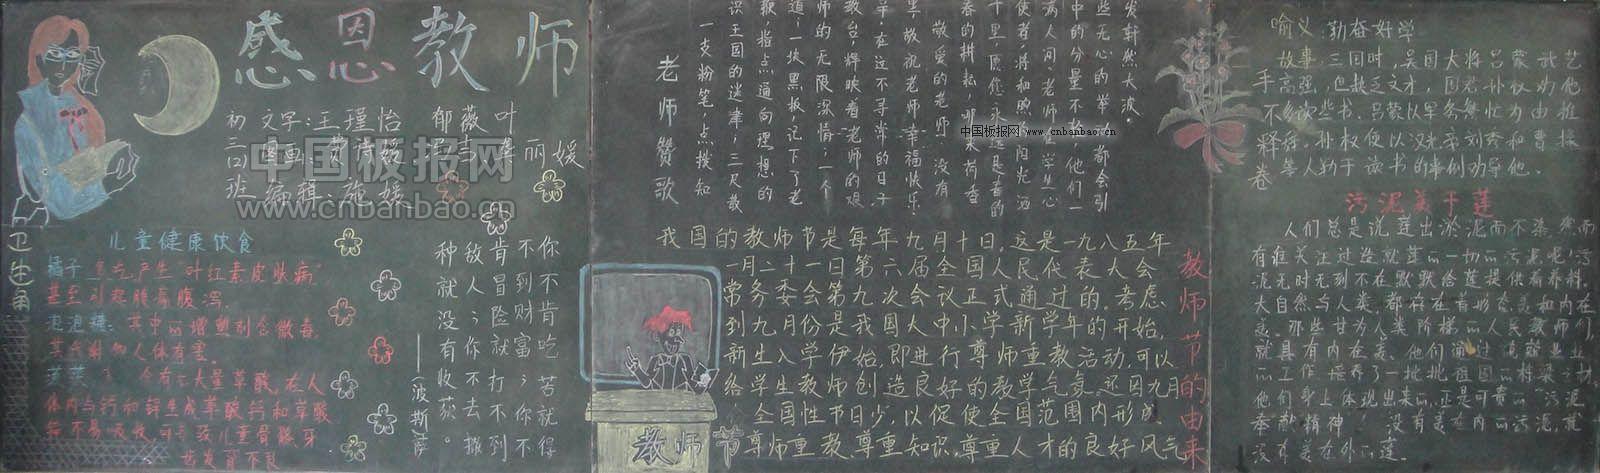 感恩教师
初三口班
文字:王瑾怡 郁薇叶
编辑:施媛
丽媛
中国板报网
www.cnbanbao.cn
卫生角
儿童健康饮食
橘子
产生"叶红素皮肤病"
泡泡糖:其中的增塑剂含微毒,
其代谢物对人体有害。
含有大量草酸,在人
体内与钙和锌生成草酸钙和草酸
锌不易吸收,可导致儿童骨骼牙
齿发育不良
你不肯吃苦就得
不到财富;你不
肯冒险就打不到
敌人;你不去撒
种就没有收获。
——(波斯)萨
老师赞歌
一支粉笔,点拨知
识王国的迷津;三尺教
鞭,指点通向理想的
道;一块黑板,记下了老
师的无限深情;一个
教台,辉映着老师的艰
辛。在这不寻常的日子
里,敬祝老师幸福快乐!
敬爱的老师:没有
春的耕耘,那来荷香
十里,愿您永远是春的
使者,将和煦的阳光洒
满人间!老师在学生心
中的分量不轻,他们一
些无心的举动,都会引
发轩然大波。
中国板报网 www.cnbanbao.cn
教师节的由来
我国的教师节是每年九月十日,这是一九八五年
一月二十一日第六届全国人民代表大会
常务委会第九次会议正式通过的。考虑
到九月份是我国大中小学新学年的开始,
新生入学伊始,即进行尊师重教活动,可以
给学生教师创造良好的教学气氛。还因九月
全国性节日少,以促使全国范围内形成
尊师重教、尊重知识、尊重人才的良好风气
教师节
喻义:勤奋好学
故事:三国时,吴国大将吕蒙武艺
高强,但缺乏文才,国君孙权劝他
多读些书,吕蒙以军务繁忙为由推
辞,孙权便以汉光帝刘秀和曹操
等人勤于读书的事例劝导他。
手不释卷
污泥美于莲
人们总是说莲出淤泥而不染,然而
有谁关注过造就莲的一切的污泥呢?污
泥无时无刻不在默默给莲提供着养料。
大自然与人类都存在着形态美和内在
美。那些甘为人类阶梯的人民教师们,
就具有内在美。他们通过兢兢业业
的工作培养了一批批祖国的栋梁之材,
他们身上体现出来的,正是可贵的"污泥
奉献精神"。没有美在内的污泥,就
没有美在外的莲。